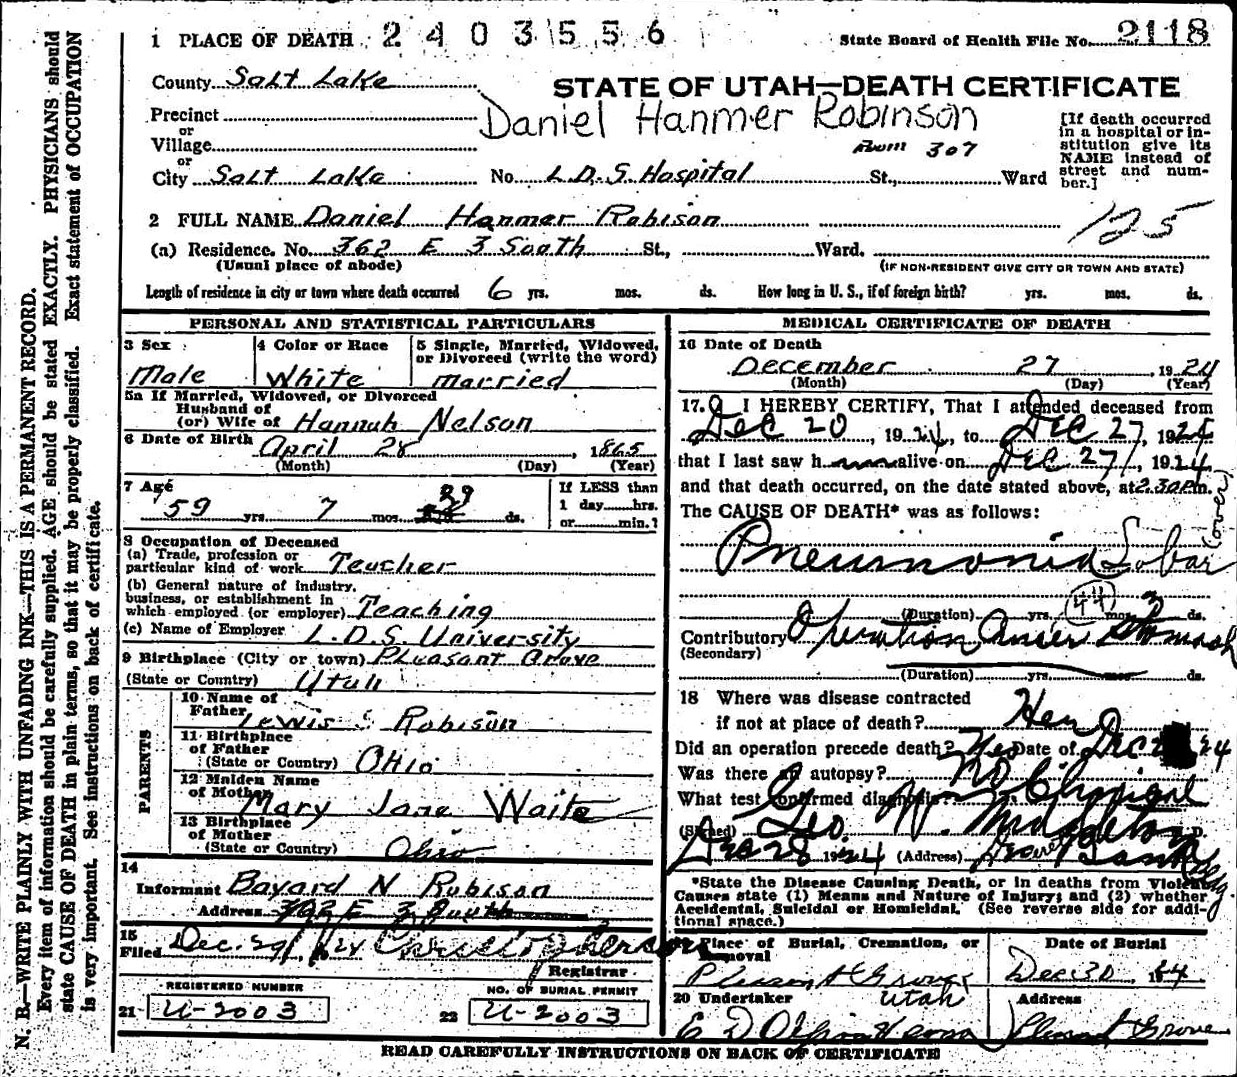 1 PLACE OF DEATH 2403556 State Board of Health File No. 2118
County Salt Lake
STATE OF UTAH—DEATH CERTIFICATE
Precinct
Daniel Hanmer Robinson
or
Village
Room 307
or
City Salt Lake No. L.D.S. Hospital St., Ward
[If death occurred
in a hospital or in-
stitution give its
NAME instead of
street and num-
ber.]
2 FULL NAME Daniel Hanmer Robison
125
(a) Residence. No. 362 E 3 South St., Ward.
(Usual place of abode) (IF NON-RESIDENT GIVE CITY OR TOWN AND STATE)
Length of residence in city or town where death occurred 6 yrs. mos. ds. How long in U. S., if of foreign birth? yrs. mos. ds.
PERSONAL AND STATISTICAL PARTICULARS
3 Sex
Male
4 Color or Race
White
5 Single, Married, Widowed,
or Divorced (write the word)
married
5a If Married, Widowed, or Divorced
Husband of
(or) Wife of Hannah Nelson
6 Date of Birth April 28, 1865
(Month) (Day) (Year)
7 Age
59 yrs. 7 mos. 29 ds.
If LESS than
1 day hrs.
or min.?
8 Occupation of Deceased
(a) Trade, profession or
particular kind of work Teacher
(b) General nature of industry,
business, or establishment in
which employed (or employer) Teaching
(c) Name of Employer L.D.S. University
9 Birthplace (City or town) Pleasant Grove
(State or Country) Utah
PARENTS
10 Name of
Father Lewis Robison
11 Birthplace
of Father
(State or Country) Ohio
12 Maiden Name
of Mother Mary Jane Waite
13 Birthplace
of Mother
(State or Country) Ohio
14
Informant Bayard N Robison
Address 362 E 3 South
15
Filed Dec. 29, 1924
Registrar
REGISTERED NUMBER
21 U-2003
NO. OF BURIAL PERMIT
22 U-2003
MEDICAL CERTIFICATE OF DEATH
16 Date of Death
December 27, 1924
(Month) (Day) (Year)
17. I HEREBY CERTIFY, That I attended deceased from
Dec 20, 1924, to Dec 27, 1924
that I last saw h alive on Dec 27, 1924
and that death occurred, on the date stated above, at 2.30 P.m.
The CAUSE OF DEATH* was as follows:
Pneumonia Lobar
(Duration) yrs. mos. 3 ds.
44
Contributory Operation Cancer Stomach
(Secondary)
(Duration) yrs. mos. ds.
18 Where was disease contracted
if not at place of death?
Did an operation precede death? Yes Date of Dec 24
Was there an autopsy? No
What test confirmed diagnosis? Clinical
(Signed) Geo. W. Middleton M. D.
Dec 28 1924 (Address) Deseret Bank Bldg.
*State the Disease Causing Death, or in deaths from Violent
Causes state (1) Means and Nature of Injury; and (2) whether
Accidental, Suicidal or Homicidal. (See reverse side for addi-
tional space.)
19 Place of Burial, Cremation, or
Removal
Pleasant Grove
Utah
Date of Burial
Dec 30, 1924
20 Undertaker
Address
Pleasant Grove
READ CAREFULLY INSTRUCTIONS ON BACK OF CERTIFICATE
N. B.—WRITE PLAINLY WITH UNFADING INK—THIS IS A PERMANENT RECORD.
Every item of information should be carefully supplied. AGE should be stated EXACTLY. PHYSICIANS should
state CAUSE OF DEATH in plain terms, so that it may be properly classified. Exact statement of OCCUPATION
is very important. See instructions on back of certificate.